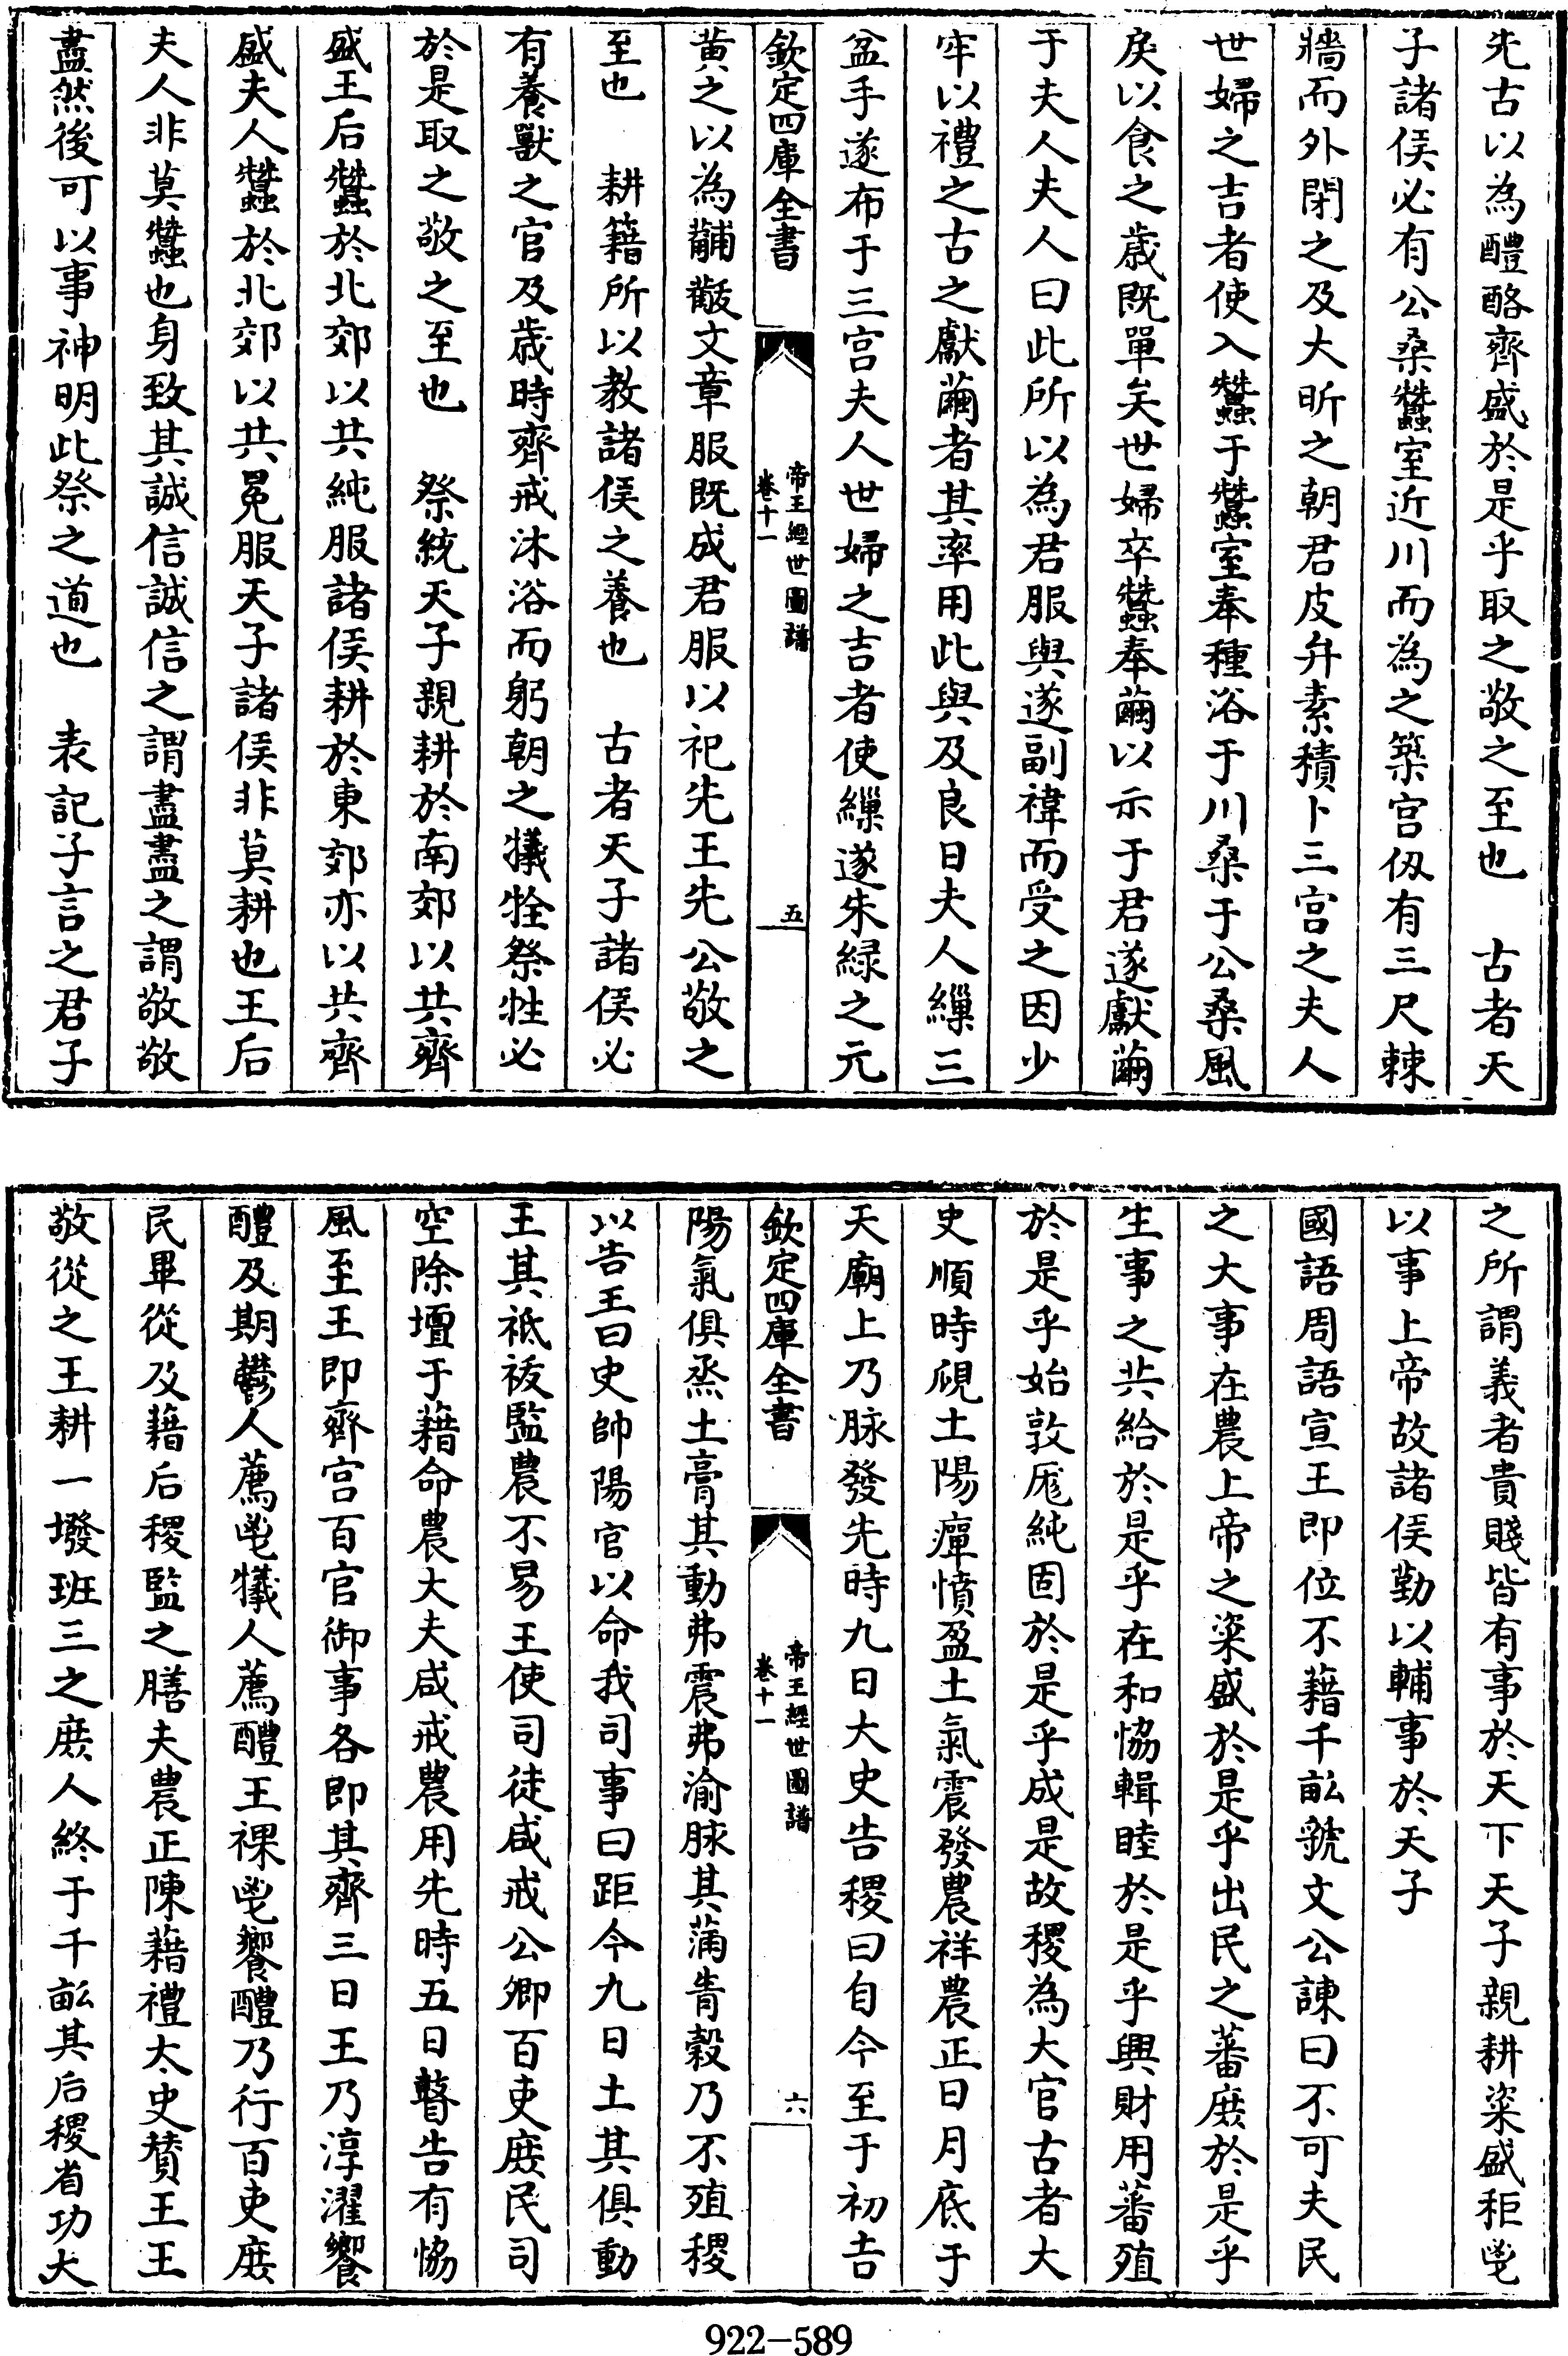 先古以為醴酪齊盛於是乎取之敬之至也　古者天
子諸侯必有公桑蠶室近川而為之築宫仭有三尺棘
牆而外閉之及大昕之朝君皮弁素積卜三宫之夫人
世婦之吉者使入蠶于蠶室奉種浴于川桑于公桑風
戾以食之歲既單矣世婦卒蠶奉繭以示于君遂獻繭
于夫人夫人曰此所以為君服與遂副褘而受之因少
牢以禮之古之獻繭者其率用此與及良日夫人繅三
盆手遂布于三宫夫人世婦之吉者使繅遂朱緑之元
欽定四庫全書
帝王經世圖譜
卷十一
五
黄之以為黼黻文章服既成君服以祀先王先公敬之
至也　耕籍所以教諸侯之養也　古者天子諸侯必
有養獸之官及歲時齊戒沐浴而躬朝之犧牷祭牲必
於是取之敬之至也　祭統天子親耕於南郊以共齊
盛王后蠶於北郊以共純服諸侯耕於東郊亦以共齊
盛夫人蠶於北郊以共冕服天子諸侯非莫耕也王后
夫人非莫蠶也身致其誠信誠信之謂盡盡之謂敬敬
盡然後可以事神明此祭之道也　表記子言之君子
之所謂義者貴賤皆有事於天下天子親耕粢盛秬鬯
以事上帝故諸侯勤以輔事於天子
國語周語宣王即位不藉千畝虢文公諫曰不可夫民
之大事在農上帝之粢盛於是乎出民之蕃庶於是乎
生事之共給於是乎在和協輯睦於是乎興財用蕃殖
於是乎始敦厖純固於是乎成是故稷為大官古者大
史順時覛土陽癉憤盈土氣震發農祥農正日月底于
天廟上乃脉發先時九日大史告稷曰自今至于初吉
欽定四庫全書
帝王經世圖譜
卷十一
六
陽氣俱烝土膏其動弗震弗渝脉其滿眚穀乃不殖稷
以告王曰史帥陽官以命我司事曰距今九日土其俱動
王其祗祓監農不易王使司徒咸戒公卿百吏庶民司
空除壇于藉命農大夫咸戒農用先時五日瞽告有協
風至王即齊宫百官御事各即其齊三日王乃淳濯饗
醴及期鬱人薦鬯犧人薦醴王祼鬯饗醴乃行百吏庶
民畢從及藉后稷監之膳夫農正陳藉禮太史贊王王
敬從之王耕一墢班三之庶人終于千畝其后稷省功大
922-589